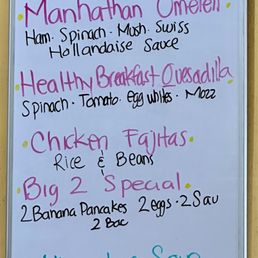 Manhathan Omelett
Ham · Spinach · Mush · Swiss
Hollandaise Sauce
Healthy Breakfast Quesadilla
Spinach · Tomato · Egg whites · Mozz
Chicken Fajitas
Rice & Beans
Big 2 Special
2 Banana Pancakes 2 eggs · 2 Sau
2 Bac